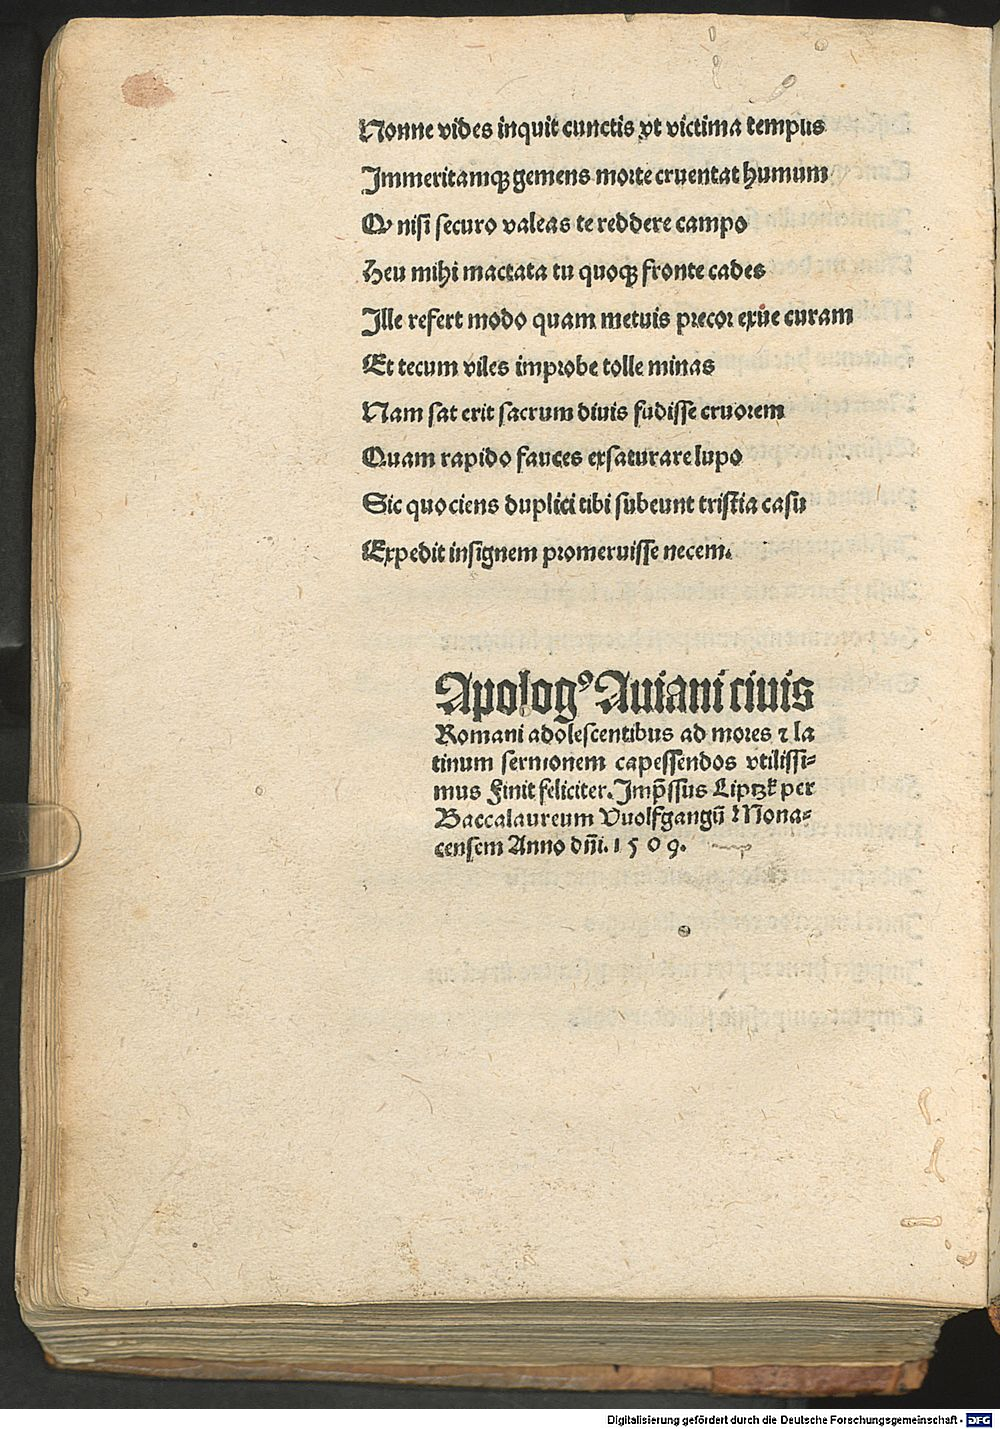 Nonne vides inquit cunctis vt victima templis
Immeritamqȝ gemens morte cruentat humum
Qꝫ nisi securo valeas te reddere campo
Heu mihi mactata tu quoqȝ fronte cades
Ille refert modo quam metuis precor exue curam
Et tecum viles improbe tolle minas
Nam sat erit sacrum diuis fudisse cruorem
Quam rapido fauces exsaturare lupo
Sic quociens duplici tibi subeunt tristia casu
Expedit insignem promeruisse necem.
Apologꝰ Auiani ciuis
Romani adolescentibus ad mores ⁊ la
tinum sermonem capessendos vtilissi-
mus Finit feliciter. Imp̄ssus Liptzk per
Baccalaureum Vuolfgangū Mona-
censem Anno dn̄i. 1509.
Digitalisierung gefördert durch die Deutsche Forschungsgemeinschaft - DFG